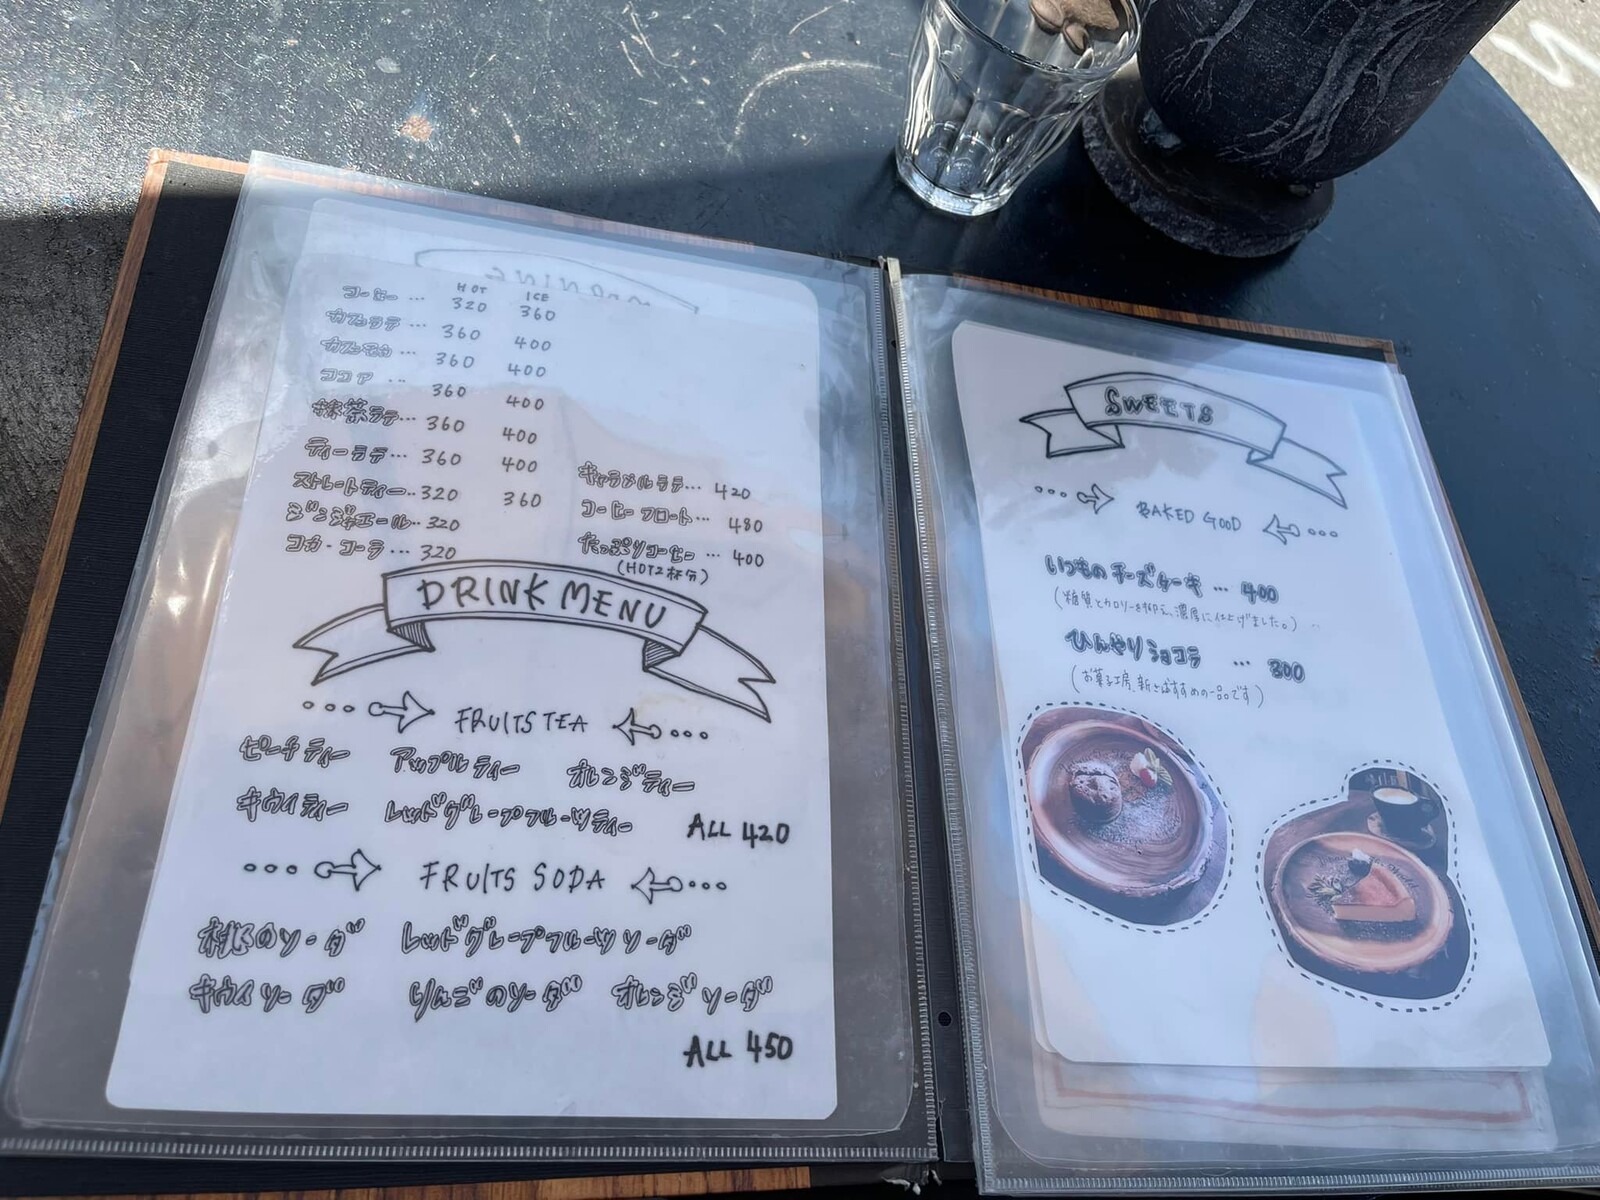 HOT ICE
コーヒー … 320 360
カフェラテ … 360 400
カフェモカ … 360 400
ココア … 360 400
抹茶ラテ… 360 400
ティーラテ… 360 400
ストレートティー.. 320 360
ジンジャエール.. 320
コカ・コーラ… 320
キャラメルラテ… 420
コーヒーフロート… 480
たっぷりコーヒー … 400
(HOT2杯分)
DRINK MENU
FRUITS TEA
ピーチティー アップルティー オレンジティー
キウイティー レッドグレープフルーツティー
ALL 420
FRUITS SODA
桃のソーダ レッドグレープフルーツソーダ
キウイソーダ りんごのソーダ オレンジソーダ
ALL 450
SWEETS
BAKED GOOD
いつものチーズケーキ … 400
(糖質とカロリーを抑え、濃厚に仕上げました。)
ひんやりショコラ … 300
(お菓子工房、新おすすめの一品です)